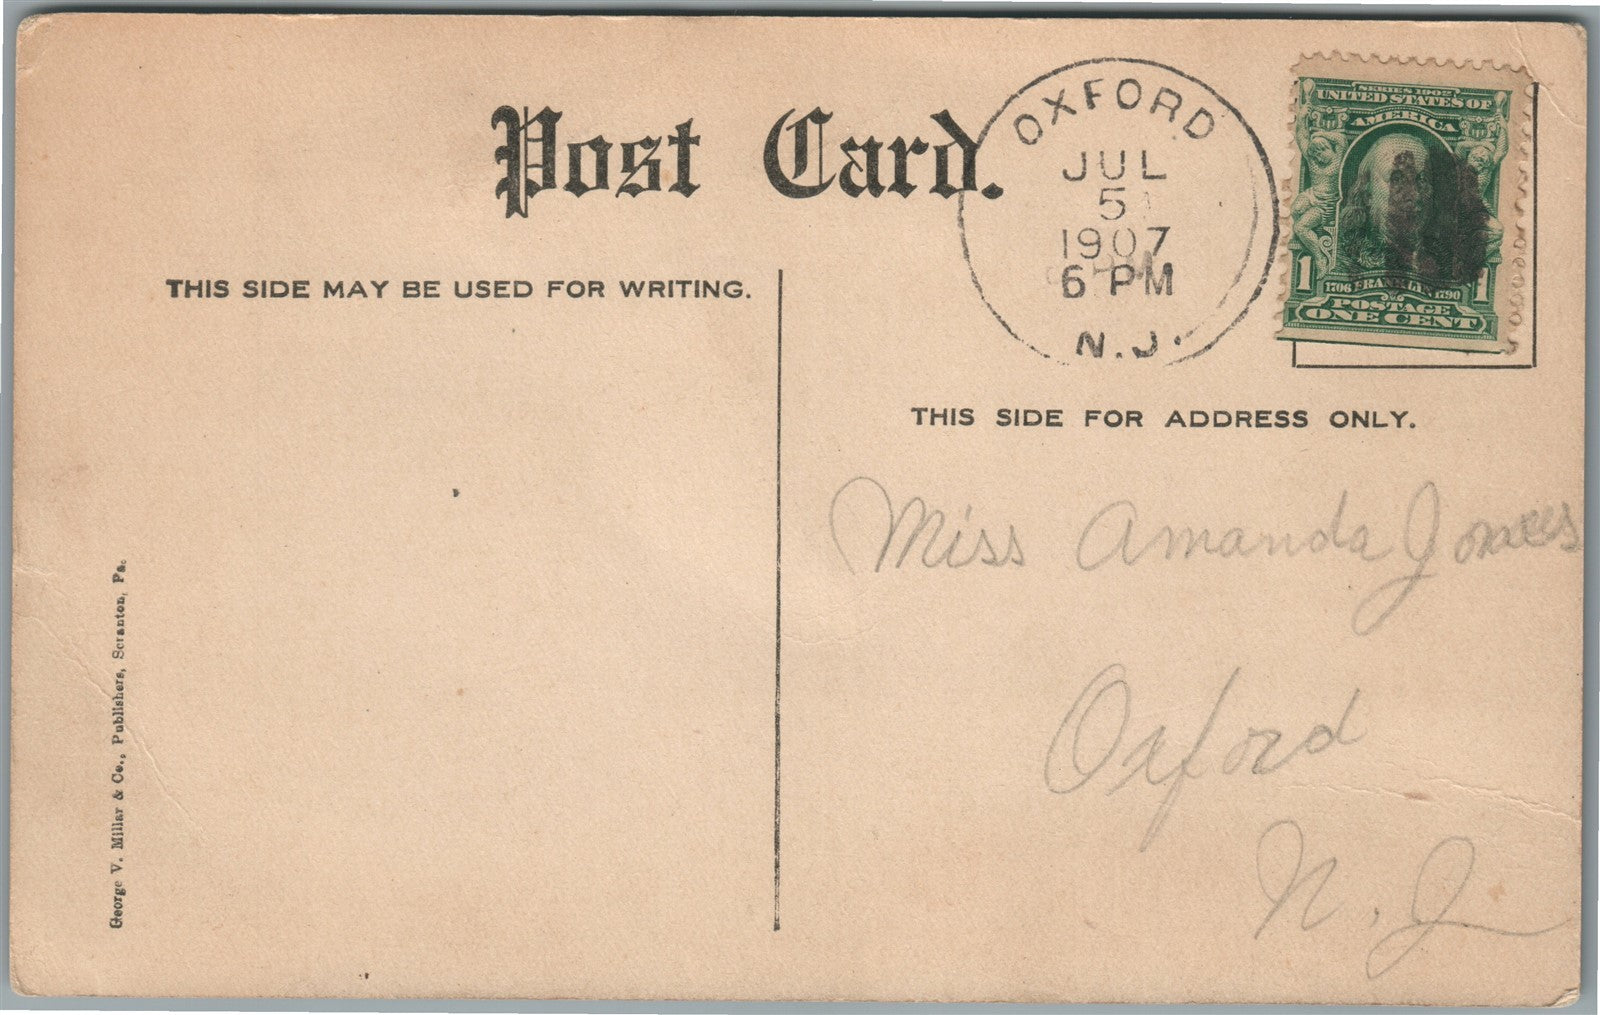 Post Card.
OXFORD
JUL
5
1907
6 PM
N.J.
SERIES 1902
UNITED STATES OF
AMERICA
1 1
1706 FRANKLIN 1790
POSTAGE
ONE CENT
THIS SIDE MAY BE USED FOR WRITING.
THIS SIDE FOR ADDRESS ONLY.
Miss Amanda
Oxford
N. J.
George V. Millar & Co., Publishers, Scranton, Pa.